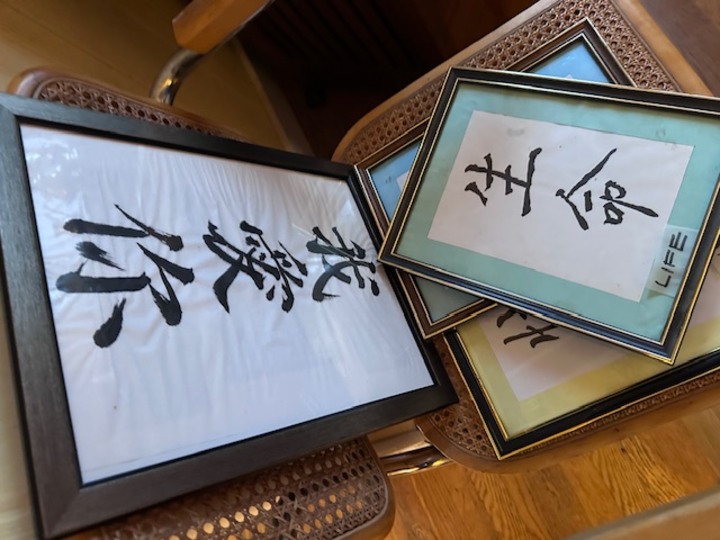 我愛你
生命
LIFE